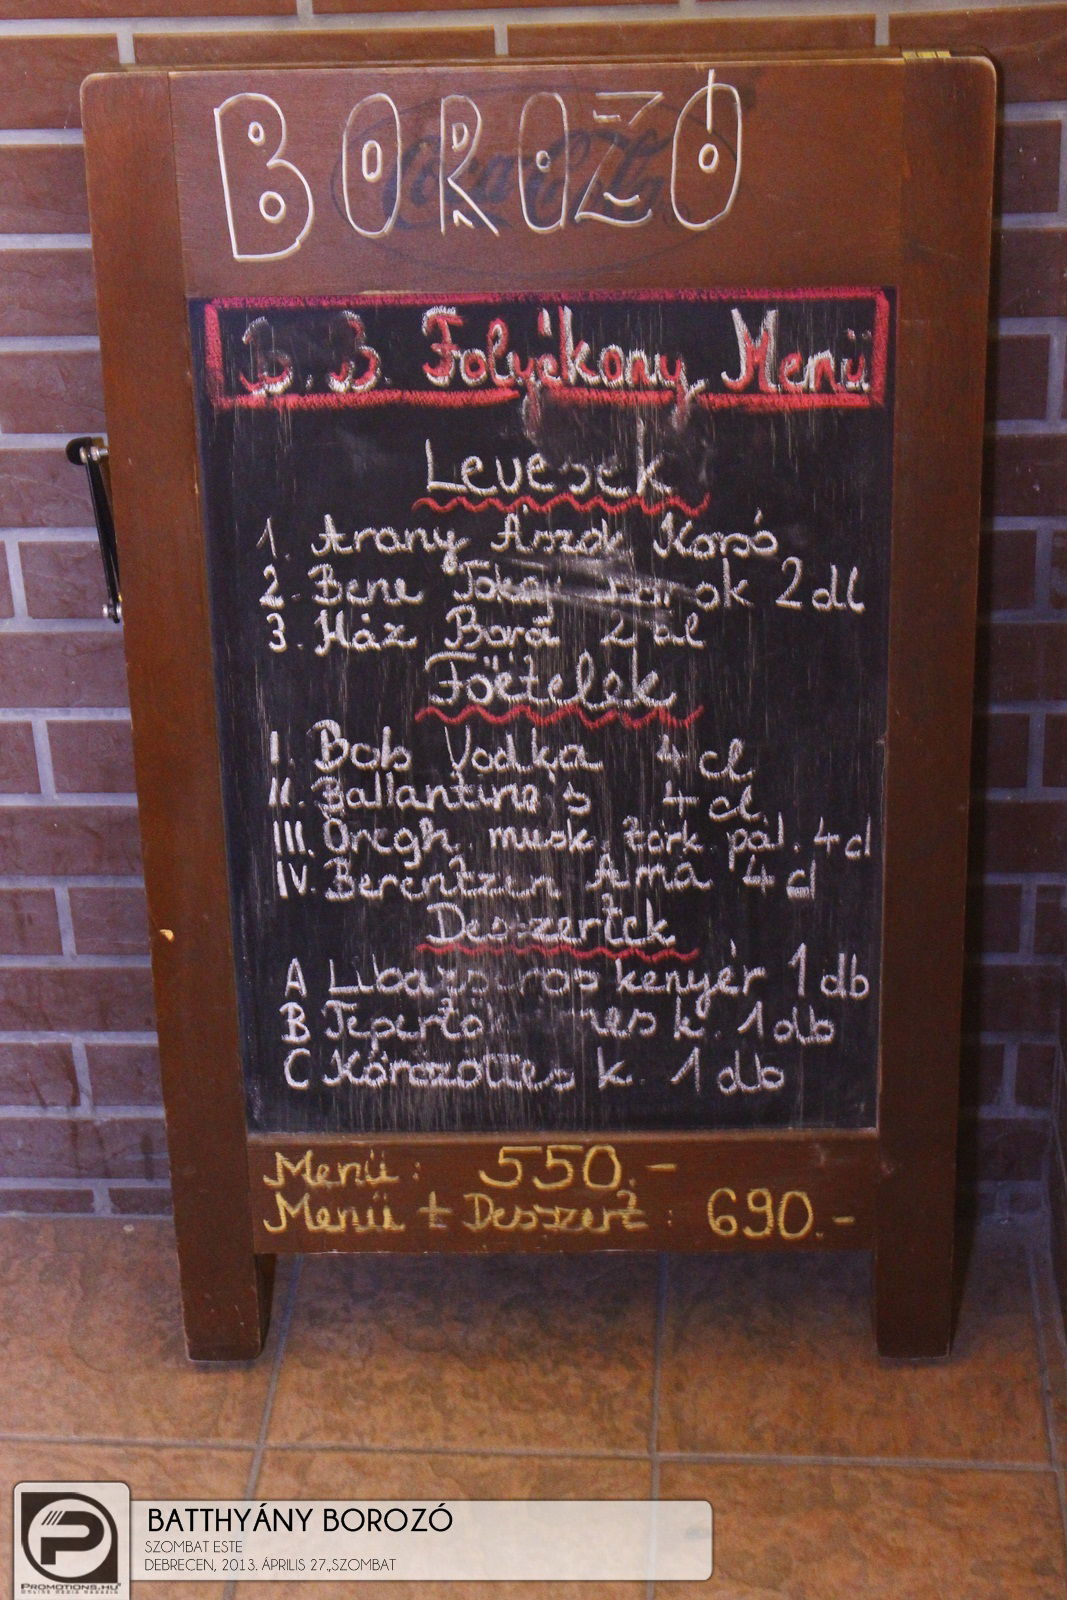 BOROZÓ
Coca-Cola
B.B. Folyékony Menü
Levesek
1. Arany Ászok Korsó
2. Bene Tokaj 2 dl
3. Ház Bora 2 dl
Főételek
I. Bob Vodka 4 cl
II. Ballantine's 4 cl
III. Öregh. musk. törk. pál. 4 cl
IV. Berentzen Alma 4 cl
Desszertek
A kenyér 1 db
B k. 1 db
C Körözöttes k. 1 db
Menü: 550.-
Menü + Desszert: 690.-
BATTHYÁNY BOROZÓ
SZOMBAT ESTE
DEBRECEN, 2013. ÁPRILIS 27.,SZOMBAT
PROMOTIONS.HU
ONLINE MEDIA MAGAZIN